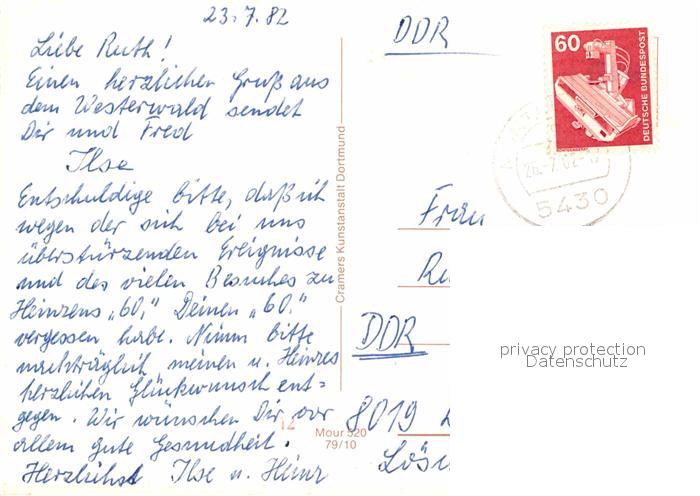 23.7.82
Liebe Ruth!
Einen herzlichen Gruß aus
dem Westerwald sendet
Dir und Fred
Ilse
Entschuldige bitte, daß ich
wegen der sich bei uns
überstürzenden Ereignisse
und des vielen Besuches zu
Heinzens „60." Deinen „60."
vergessen habe. Nimm bitte
nachträglich meinen u. Heinzes
herzlichen Glückwunsch ent=
gegen. Wir wünschen Dir vor
allem gute Gesundheit.
Herzlichst Ilse u. Heinz
Cramers Kunstanstalt Dortmund
Mour 520
79/10
DDR
60
DEUTSCHE BUNDESPOST
5430
Frau
DDR
8019
privacy protection
Datenschutz